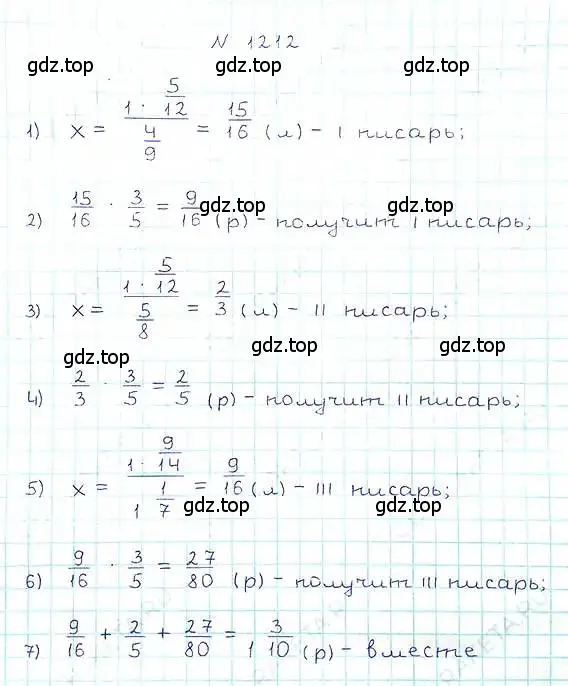 N 1212
gdz.top gdz.top
1) x = (1 · 5/12) / (4/9) = 15/16 (л) – I писарь;
2) 15/16 · 3/5 = 9/16 (р) – получит I писарь;
gdz.top gdz.top
3) x = (1 · 5/12) / (5/8) = 2/3 (л) – II писарь;
gdz.top gdz.top
4) 2/3 · 3/5 = 2/5 (р) – получит II писарь;
5) x = (1 · 9/14) / (1 1/7) = 9/16 (л) – III писарь;
gdz.top gdz.top
6) 9/16 · 3/5 = 27/80 (р) – получит III писарь;
7) 9/16 + 2/5 + 27/80 = 1 3/10 (р) – вместе